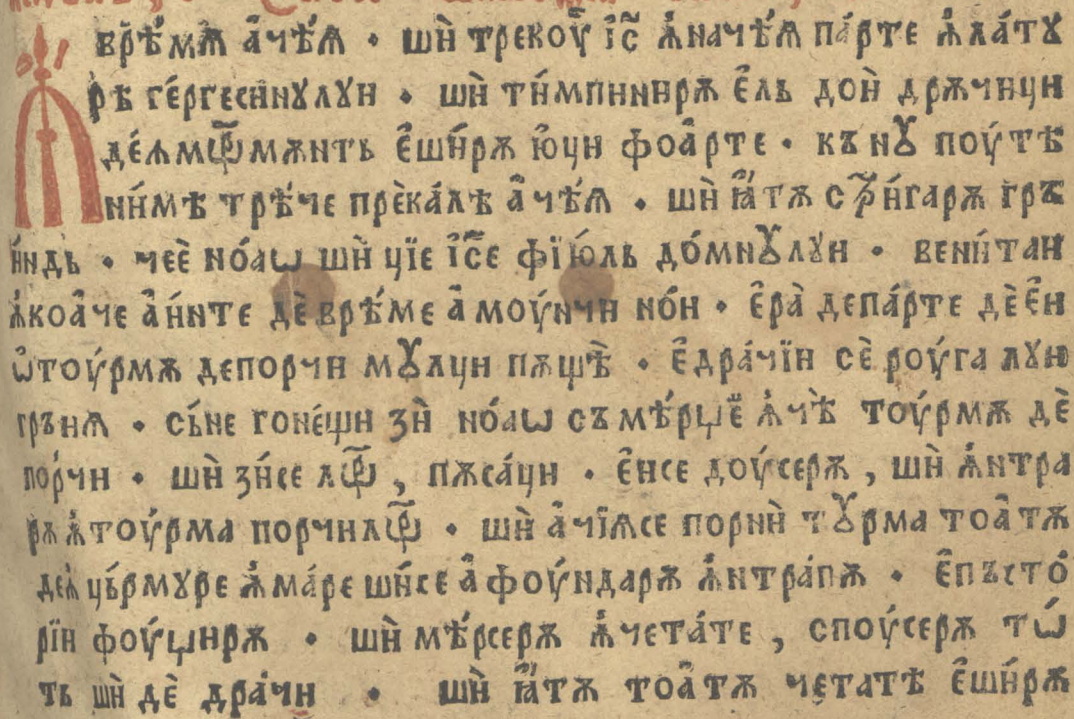 врѣ́мѧ а҆чѣ́ꙗ · шѝ трекоу҆̀ і҆с꙯ ꙟ҆начѣ́ꙗ па́рте ꙟ҆ла́тꙋ
рѣ ге́ргесинꙋлꙋи · шѝ ти́мпинирѫ є҆ль дои̇̀ дрѫчици
де́ѧмѿмѫнть є҆ши́рѫ ю҆ци фоа҆рте · къ нꙋ поу́тѣ
ни́мѣ трѣ́че прѐка́лѣ а҆чѣ́ꙗ · шѝ ꙗ҆́тѫ стри́гарѫ грѣ
и́ндь · чеѐ но́аѡ шѝ ціе і҆с꙯е фїю́ль до́мнꙋлꙋи · вени́таи
ꙟ҆коа҆че а҆и́нте дѐ врѣ́ме а҆ моу́нчи но́и · є҆рà депа́рте дѐ є҆и
ѡ҆тоу́рмѫ депорчи мꙋлци пѫщѐ · є҆дра́чїи сѐ роу́га лꙋи
гръиꙗ · сы́не гоне́щи зѝ но́аѡ съ мѣ́рџе́ ꙟ҆чѣ̀ тоу́рмѫ дѐ
по́рчи · шѝ зи́се лѿ , пѫса́ци · є҆исе доу́серѫ , шѝ ꙟ҆нтра
рѫ ꙟ҆тоу́рма порчилѿ · шѝ а҆чїѧсе порни̇̀ тꙋ́рма тоа҆тѫ
деѧ҆̀ цы́рмꙋре ꙟ҆ма́ре ши́се а҆фоу́ндарѫ ꙟ҆нтра́пѫ · є҆пъсто́
рїи фоу́џирѫ · шѝ мѣ́рсерѫ ꙟ҆чета́те , споу́серѫ тѡ́
ть шѝ дѐ дра́чи · шѝ ꙗ҆́тѫ тоа҆тѫ четатѣ є҆ши́рѫ